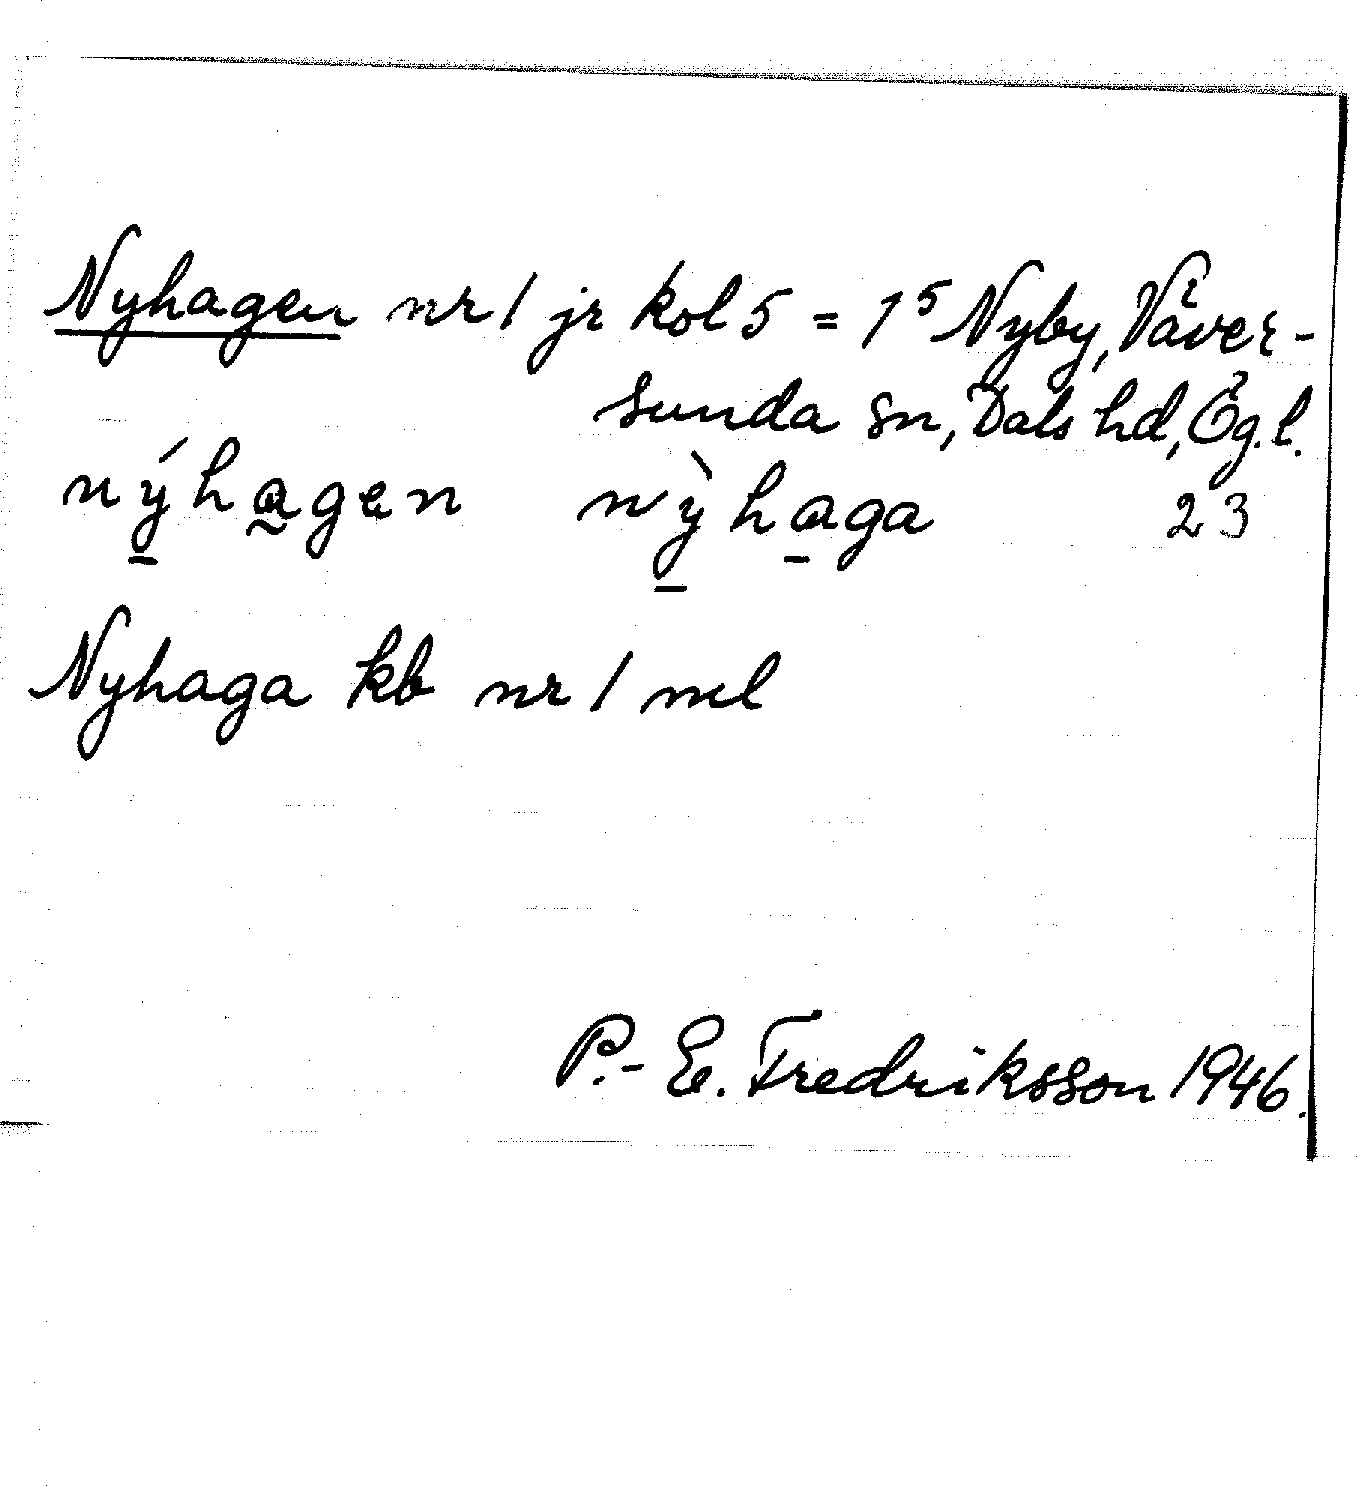 Nyhagen nr 1 jr kol 5 = 1⁵ Nyby, Väver-
sunda sn, Dals hd, Ög. l.
nýhagen nỳhaga 23
Nyhaga kb nr 1 ml
P.-E. Fredriksson 1946.